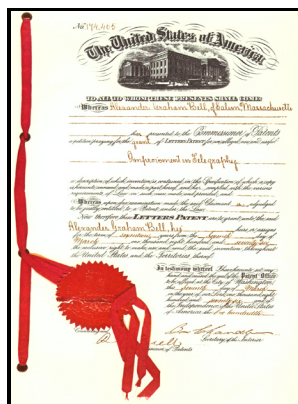 No. 174,465
The United States of America
TO ALL TO WHOM THESE PRESENTS SHALL COME:
Whereas Alexander Graham Bell, of Salem, Massachusetts
has presented to the Commissioner of Patents
a petition praying for the grant of LETTERS PATENT for an alleged new and useful
Improvement in Telegraphy
a description of which invention is contained in the Specification of which a copy
is hereunto annexed and made a part hereof, and has complied with the various
requirements of Law in such cases made and provided, and
Whereas upon due examination made the said Claimant is adjudged
to be justly entitled to a Patent under the Law.
Now therefore these LETTERS PATENT are to grant unto the said
Alexander Graham Bell, his heirs or assigns
for the term of seventeen years from the seventh day of
March one thousand eight hundred and seventy-six
the exclusive right to make, use and vend the said invention throughout
the United States and the Territories thereof.
In testimony whereof I have hereunto set my
hand and caused the seal of the Patent Office
to be affixed at the City of Washington
this seventh day of March
in the year of our Lord one thousand eight
hundred and seventy-six and of
the Independence of the United States
of America the one hundredth.
Secretary of the Interior
Commissioner of Patents